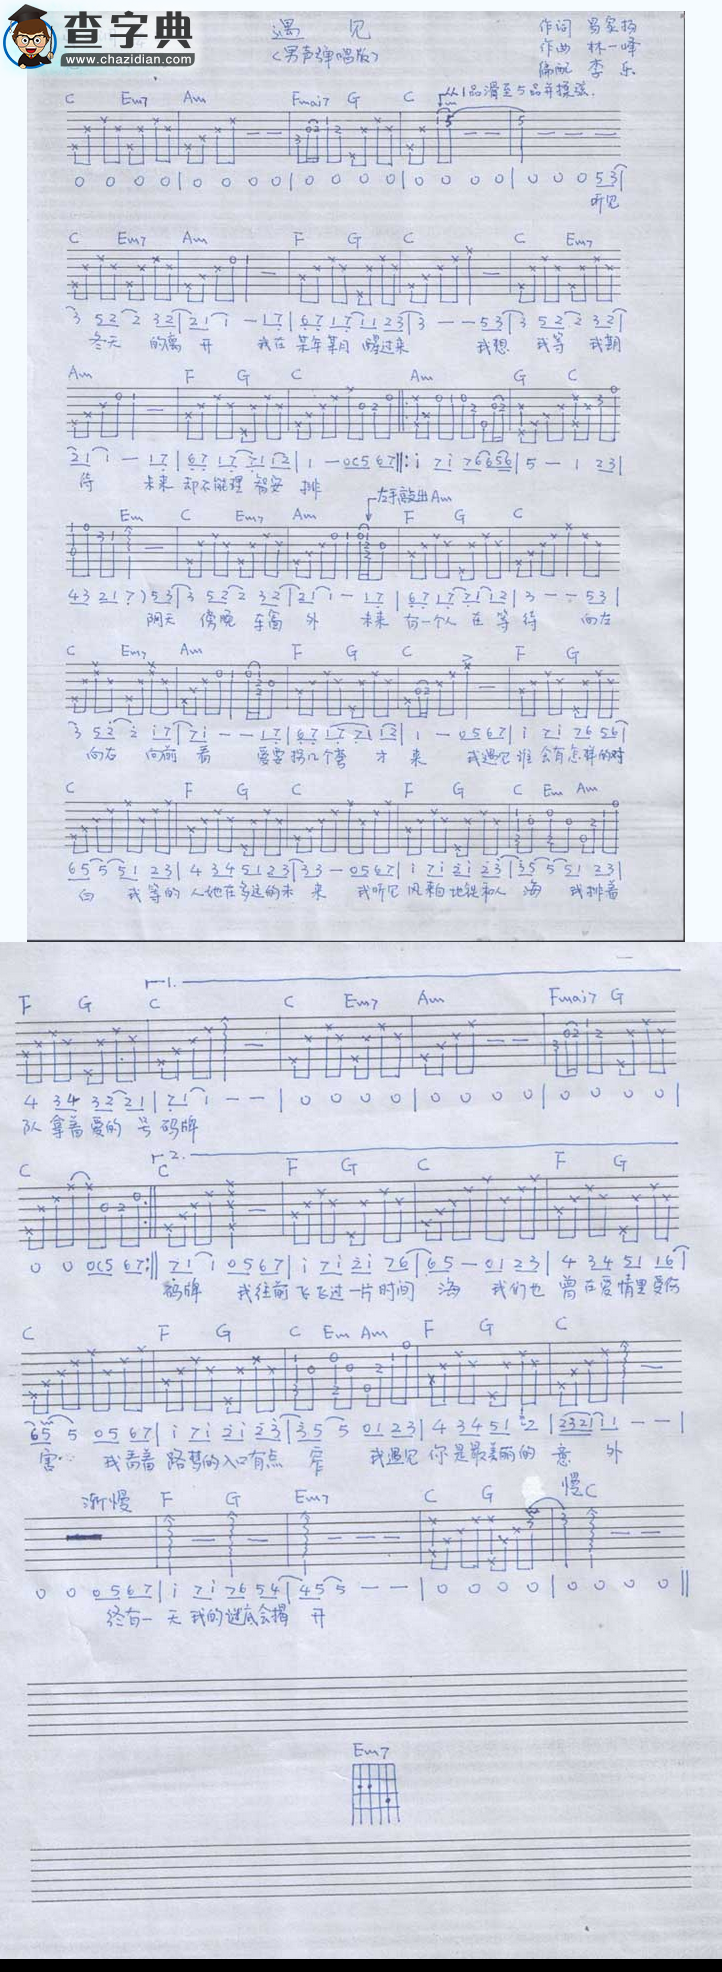 查字典
www.chazidian.com
遇 见
(男声弹唱版)
作词 易家扬
作曲 林一峰
编配 李 乐
从1品滑至5品并揉弦.
C Em7 Am Fmaj7 G C
0 0 0 0 | 0 0 0 0 | 0 0 0 0 | 0 0 0 0 | 0 0 0 5 3 |
听见
C Em7 Am F G C C Em7
3 5 2 2 3 2 | 2 1 1 - 1 7 | 6 7 1 7 1 1 2 3 | 3 - - 5 3 | 3 5 2 2 3 2 |
冬天 的离 开 我在 某年某月 醒过来 我想 我等 我期
Am F G C Am G C
2 1 1 - 1 7 | 6 7 1 7 7 1 1 2 | 1 - 0 (5 6 7 ‖: i 7 i 7 6 6 5 6 | 5 - 1 2 3 |
待 未来 却不能理 智安 排
左手敲出Am
Em C Em7 Am F G C
4 3 2 1 7 ) 5 3 | 3 5 2 2 3 2 | 2 1 1 - 1 7 | 6 7 1 7 7 1 1 2 | 3 - - 5 3 |
阴天 傍晚 车窗 外 未来 有一个人 在 等 待 向左
C Em7 Am F G C F G
3 5 2 2 i 7 | 7 i - - 1 7 | 6 7 1 7 7 1 1 2 | 1 - 0 5 6 7 | i 7 i 7 6 5 6 |
向右 向前 看 爱要 拐几个弯 才 来 我遇见 谁 会有怎样的对
C F G C F G C Em Am
6 5 5 5 1 2 3 | 4 3 4 5 1 2 3 | 3 3 - 0 5 6 7 | i 7 i 2 i 2 3 | 3 5 5 5 1 2 3 |
白 我等的 人他在多远的未 来 我听见 风来自地铁和人 海 我排着
F G 1. C C Em7 Am Fmaj7 G
4 3 4 3 2 2 1 | 7 1 1 - - | 0 0 0 0 | 0 0 0 0 | 0 0 0 0 |
队 拿着爱的 号 码牌
C 2. C F G C F G
0 0 0 (5 6 7 :‖ 7 1 1 0 5 6 7 | i 7 i 2 i 7 6 | 6 5 - 0 1 2 3 | 4 3 4 5 1 1 6 |
码牌 我往前 飞飞过一片时间 海 我们也 曾在爱情里受伤
C F G C Em Am F G C
6 5 5 0 5 6 7 | i 7 i 2 i 2 3 | 3 5 5 0 1 2 3 | 4 3 4 5 1 2 | 2 3 2 1 1 1 - - |
害 我看着 路梦的入口有点 窄 我遇见 你是最美丽的 意 外
渐慢 F G Em7 C G 慢 C
0 0 0 5 6 7 | i 7 i 7 6 5 4 | 4 5 5 - - | 0 0 0 0 | 0 0 0 0 ‖
终有一 天 我的谜底会揭 开
Em7